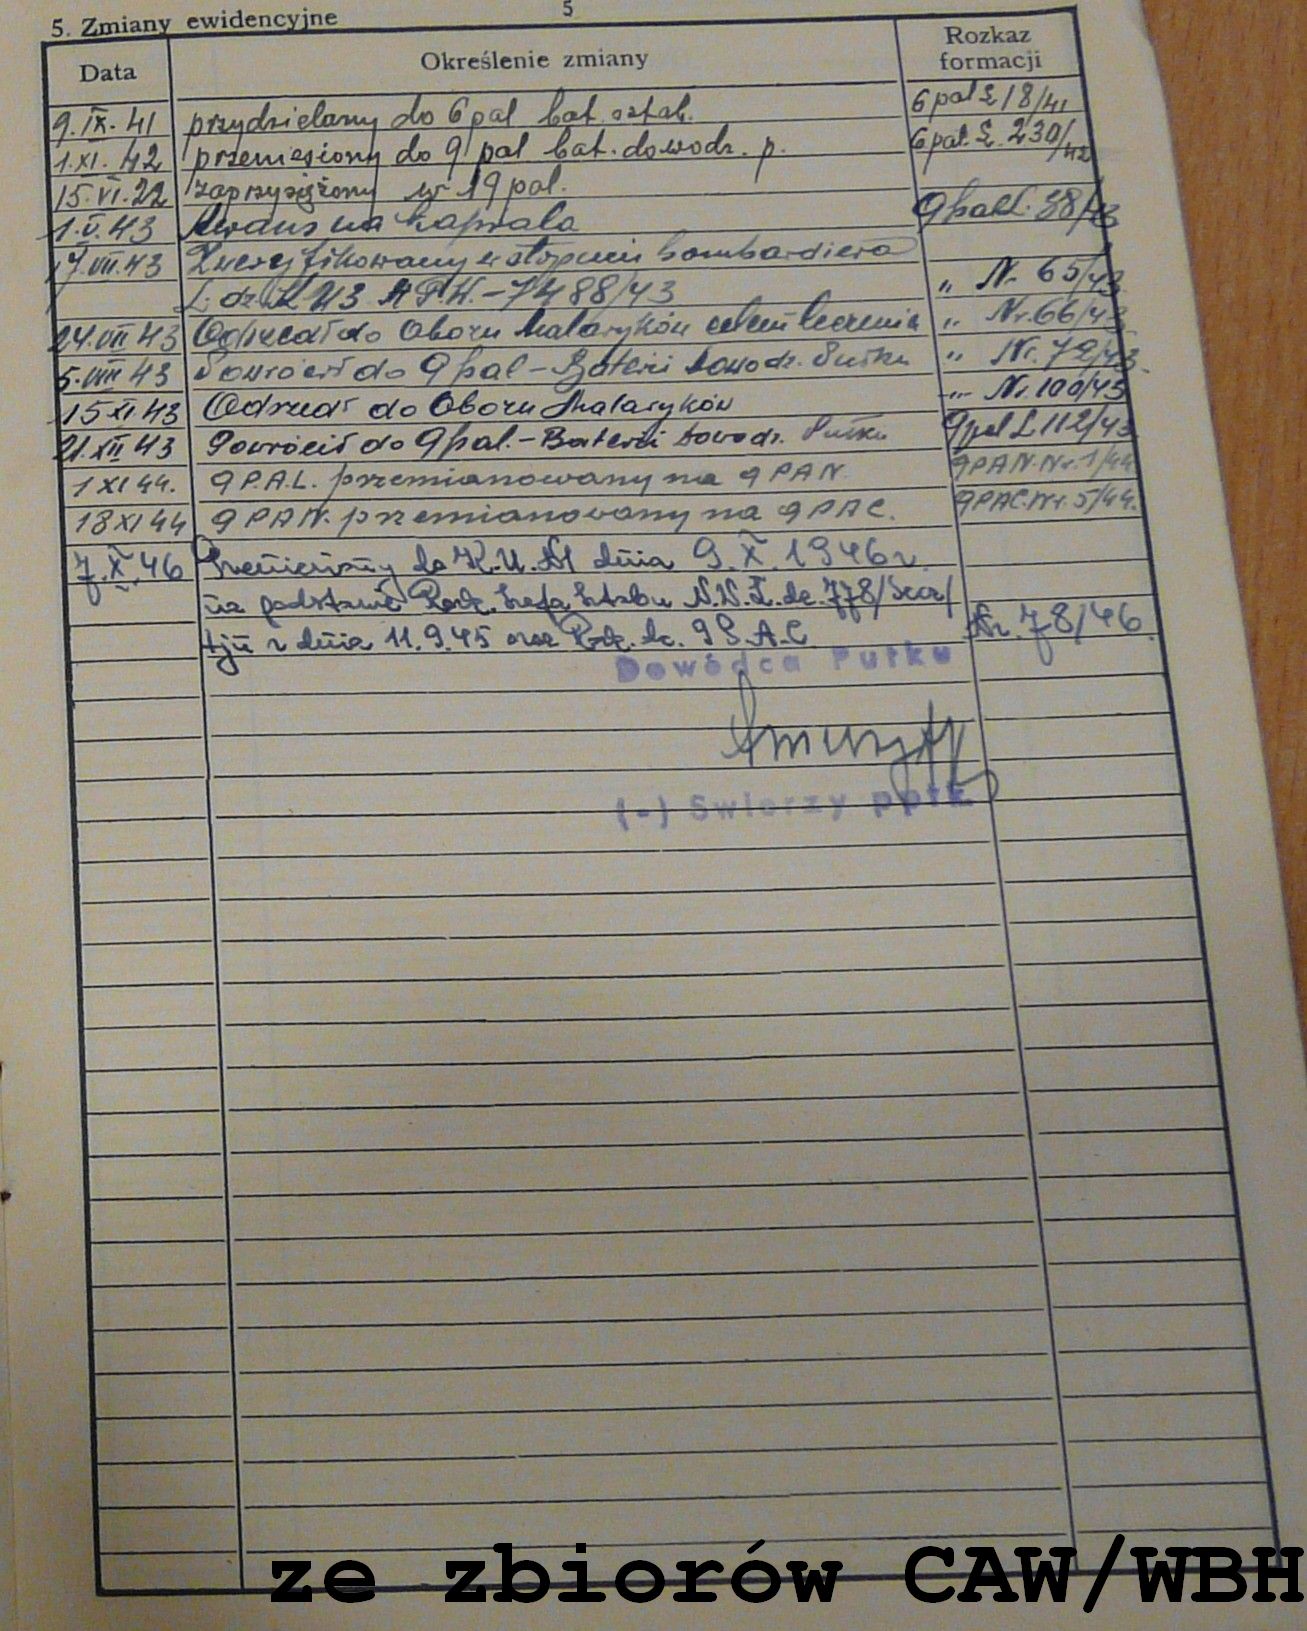 5
5. Zmiany ewidencyjne
Data Określenie zmiany Rozkaz formacji
9.IX.41 przydzielany do 6 pal bat. sztab. 6 pal L 18/41
1.XI.42 przeniesiony do 9 pal bat. dowodz. p. 6 pal. L. 230/42
15.VI.22 zaprzysiężony w 19 pal.
1.V.43 Awans na kaprala 9 pal L. 38/43
17.VII.43 Zweryfikowany w stopniu bombardiera
L. dz. 7488/43 " Nr 65/43
24.VII 43 Odszedł do Obozu Malaryków celem leczenia " Nr. 66/43
5.VIII 43 Powrócił do 9 pal - Baterii Dowodz. Pułku " Nr. 72/43
15 XI 43 Odszedł do Obozu Malaryków " Nr. 100/43
21.XII 43 Powrócił do 9 pal. - Baterii Dowodz. Pułku 9 pal L 112/43
1 XI 44. 9 P.A.L. przemianowany na 9 PAN. 9 PAN. Nr. 1/44
18 XI 44 9 PAN. przemianowany na 9 PAC. 9 PAC. Nr. 5/44.
7.X.46 do dnia 9.X.1946 r.
na podstawie Rozk. Szefa Sztabu N.W. L.dz. 778/
z dnia 11.9.45 oraz Nr. 78/46.
Dowódca Pułku
(-) Swierzy ppłk.
ze zbiorów CAW/WBH